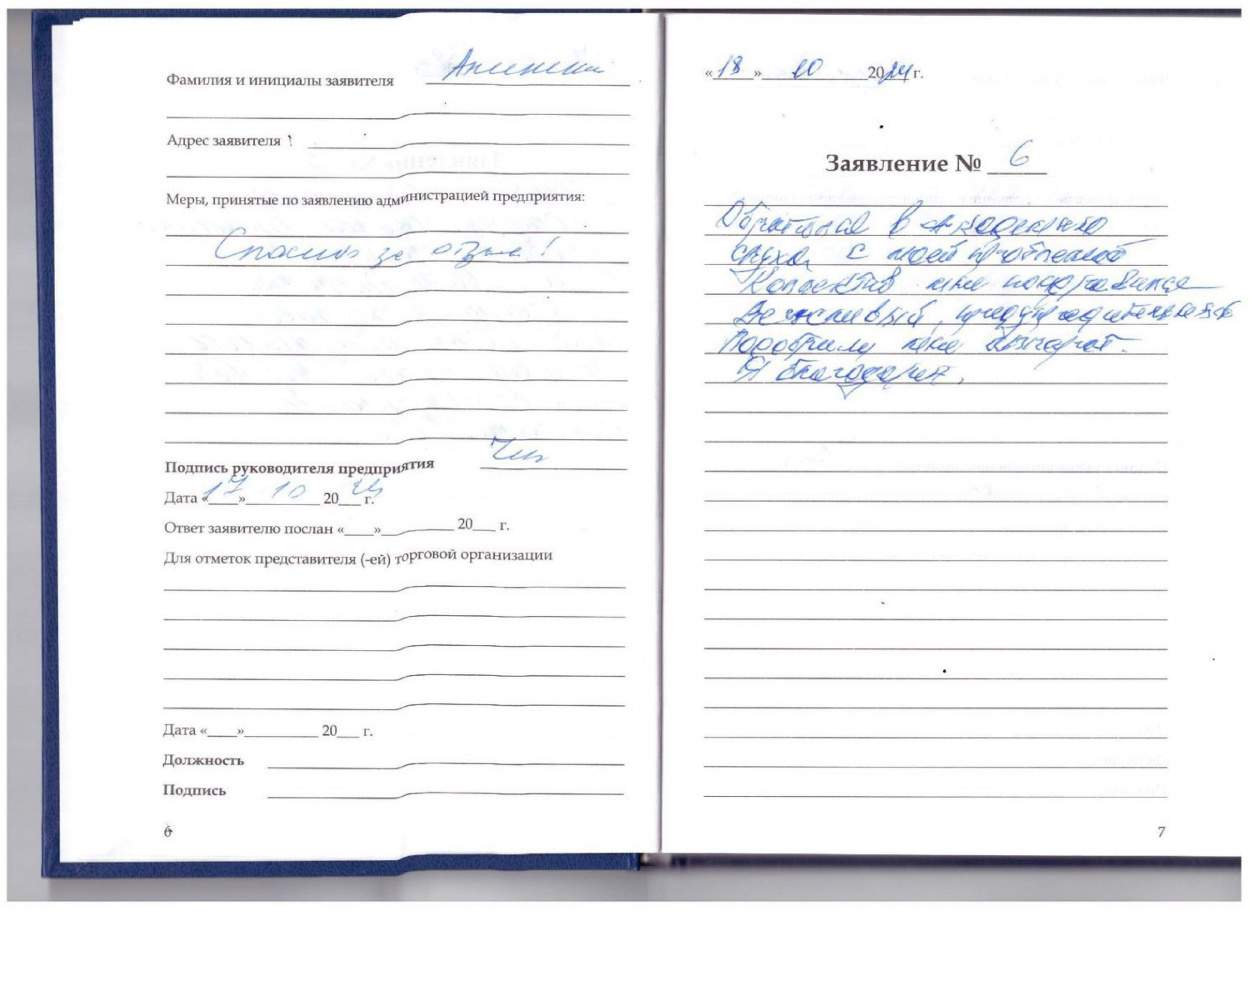 Фамилия и инициалы заявителя
Адрес заявителя
Меры, принятые по заявлению администрацией предприятия:
Спасибо за отзыв!
Подпись руководителя предприятия
Дата «17» 10 2024 г.
Ответ заявителю послан «____»__________ 20___ г.
Для отметок представителя (-ей) торговой организации
Дата «____»__________ 20___ г.
Должность
Подпись
6
«18» 10 2024 г.
Заявление № 6
Обратился в Академию
слуха, с моей проблемой
Коллектив мне понравился
Вежливый, предупредительный
Подобрали мне аппарат.
Я благодарен.
7